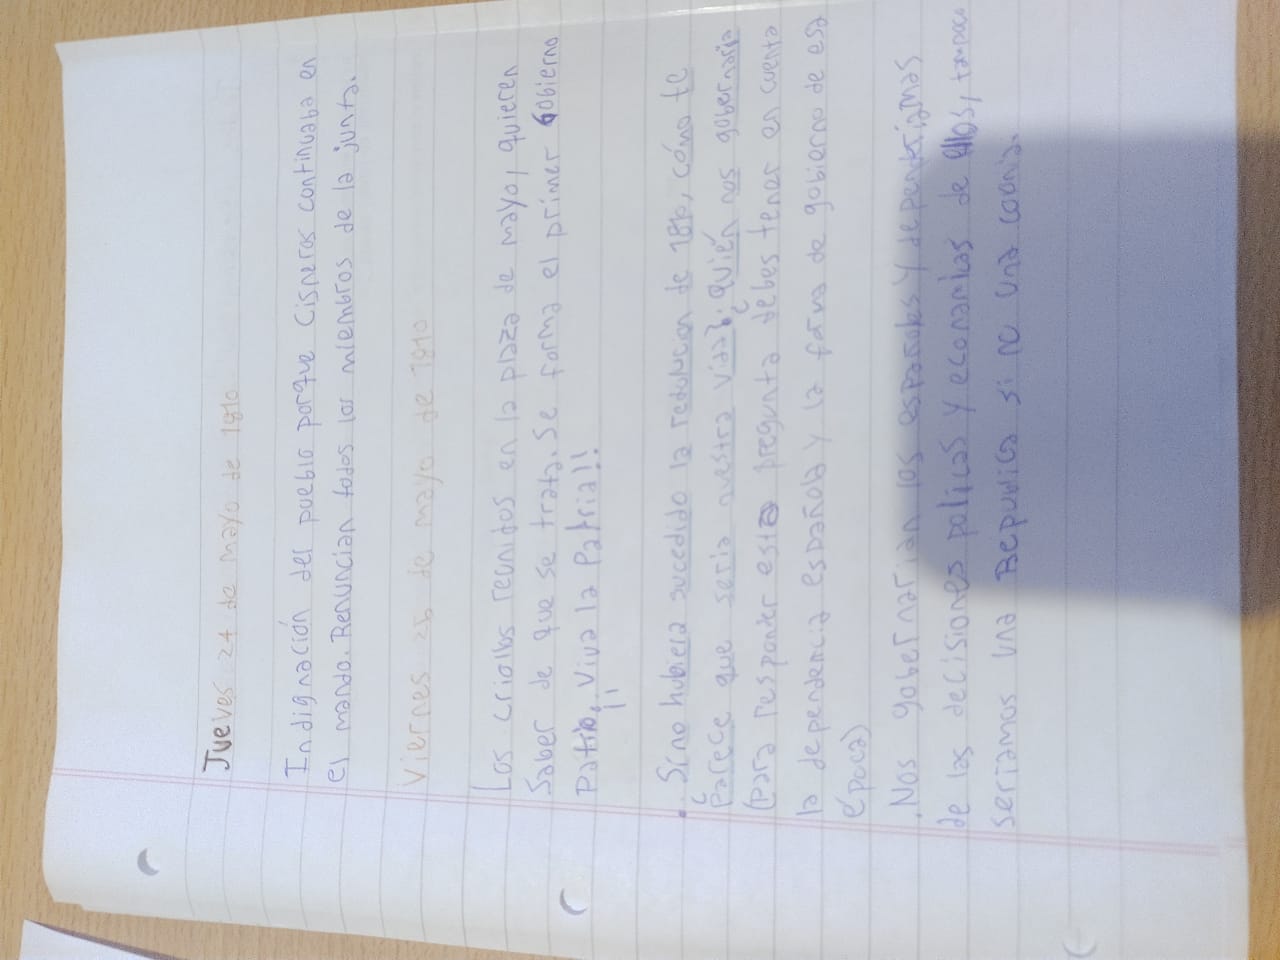 Jueves 24 de mayo de 1810
Indignación del pueblo porque Cisneros continuaba en
el mando. Renuncian todos los miembros de la junta.
Viernes 25 de mayo de 1810
Los criollos reunidos en la plaza de mayo, quieren
Saber de que se trata. Se forma el primer Gobierno
Patrio, ¡¡Viva la Patria!!
. ¿Si no hubiera sucedido la revolucion de 1810, cómo te
Parece que seria nuestra vida?. ¿quién nos gobernaria
(para responder esta pregunta debes tener en cuenta
la dependencia española y la forma de gobierno de esa
época)
.Nos gobernarian los españoles y dependiamas
de las decisiones politicas y economicas de ellos, tampoco
seriamos una Republica si no una coonia.